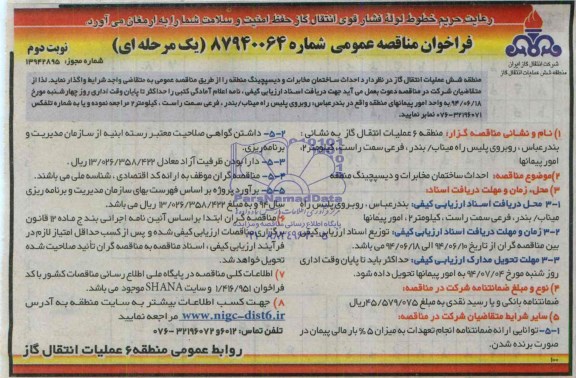 رعایت حریم خطوط لوله فشار قوی انتقال گاز حفظ امنیت و سلامت شما را به ارمغان می آورد
شرکت انتقال گاز ایران
منطقه شش عملیات انتقال گاز
فراخوان مناقصه عمومی شماره ۸۷۹۴۰۰۶۴ (یک مرحله ای)
نوبت دوم
شماره مجوز: ۱۳۹۴۲۸۹۵
منطقه شش عملیات انتقال گاز در نظر دارد احداث ساختمان مخابرات و دیسپچینگ منطقه را از طریق مناقصه عمومی به متقاضی واجد شرایط واگذار نماید. لذا از
متقاضیان شرکت در مناقصه دعوت بعمل می آید جهت دریافت اسناد ارزیابی کیفی، نامه اعلام آمادگی کتبی را حداکثر تا پایان وقت اداری روز چهارشنبه مورخ
۹۴/۰۶/۱۸ به واحد امور پیمانهای منطقه واقع در بندرعباس، روبروی پلیس راه میناب/ بندر، فرعی سمت راست، کیلومتر ۲ مراجعه نموده و یا به شماره تلفکس
۳۲۱۹۶۰۷۶-۰۷۶ نمابر نمایید.
۱) نام و نشانی مناقصه گزار: منطقه ۶ عملیات انتقال گاز به نشانی:
بندرعباس، روبروی پلیس راه میناب/ بندر، فرعی سمت راست، کیلومتر ۲،
امور پیمانها
۲) موضوع مناقصه: احداث ساختمان مخابرات و دیسپچینگ منطقه
۳) محل، زمان و مهلت دریافت اسناد:
۳-۱ محل دریافت اسناد ارزیابی کیفی: بندرعباس، روبروی پلیس راه
میناب/ بندر، فرعی سمت راست، کیلومتر ۲، امور پیمانها
۳-۲ زمان و مهلت دریافت اسناد ارزیابی کیفی: توزیع اسناد ارزیابی کیفی
بین مناقصه گران از تاریخ ۹۴/۰۶/۱۰ الی ۹۴/۰۶/۱۸ می باشد.
۳-۳ مهلت تحویل مدارک ارزیابی کیفی: حداکثر باید تا پایان وقت اداری
روز شنبه مورخ ۹۴/۰۷/۰۴ به امور پیمانها تحویل داده شود.
۴) نوع و مبلغ ضمانتنامه شرکت در مناقصه:
ضمانتنامه بانکی و یا رسید نقدی به مبلغ ۴۵/۵۷۹/۰۷۵ ریال
۵) سایر شرایط متقاضیان شرکت در مناقصه:
۵-۱- توانایی ارائه ضمانتنامه انجام تعهدات به میزان ۵% بار مالی پیمان در
صورت برنده شدن.
۵-۲- داشتن گواهی صلاحیت معتبر رسته ابنیه از سازمان مدیریت و
برنامه ریزی.
۵-۳- دارا بودن ظرفیت آزاد معادل ۱۳/۰۲۶/۳۵۸/۴۲۲ ریال.
۵-۴- مناقصه گران موظف به ارائه کد اقتصادی، شناسه ملی می باشند.
۵-۵- برآورد پروژه بر اساس فهرست بهای سازمان مدیریت و برنامه ریزی
سال ۹۴ و به مبلغ ۱۳/۰۲۶/۳۵۸/۴۲۲ ریال می باشد.
۶) مناقصه گران ابتدا بر اساس آئین نامه اجرایی بند ج ماده ۱۲ قانون
برگزاری مناقصات ارزیابی کیفی شده و پس از کسب حداقل امتیاز لازم در
فرآیند ارزیابی کیفی، اسناد مناقصه به مناقصه گران تأئید صلاحیت شده
تحویل خواهد شد.
۷) اطلاعات کلی مناقصه در پایگاه ملی اطلاع رسانی مناقصات کشور با کد
فراخوان ۱/۴۱۶/۹۵۱ و سایت SHANA موجود می باشد.
۸) جهت کسب اطلاعات بیشتر به سایت منطقه به آدرس
www.nigc-dist6.ir مراجعه نمایید
تلفن تماس: ۱۲و۳۲۱۹۶۰۷۲-۰۷۶
روابط عمومی منطقه ۶ عملیات انتقال گاز
ParsNamadData
پایگاه اطلاع رسانی مناقصه و مزایده